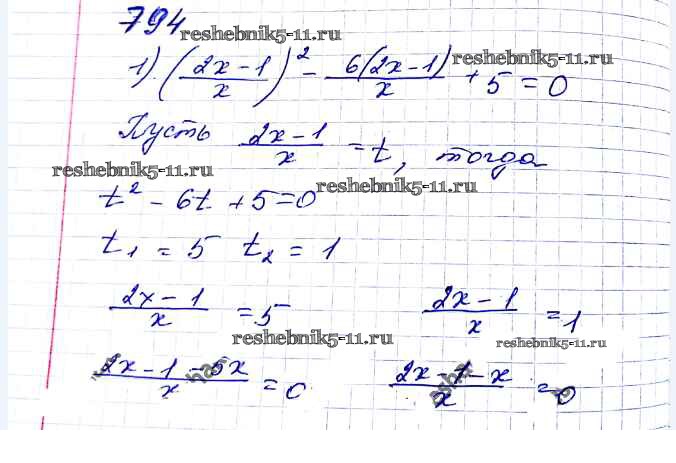 794
reshebnik5-11.ru
1) ((2x-1)/x)² - 6(2x-1)/x + 5 = 0
reshebnik5-11.ru
Пусть (2x-1)/x = t, тогда
reshebnik5-11.ru
t² - 6t + 5 = 0
reshebnik5-11.ru
t₁ = 5 t₂ = 1
(2x-1)/x = 5 (2x-1)/x = 1
reshebnik5-11.ru
reshebnik5-11.ru
(2x-1-5x)/x = 0 (2x-1-x)/x = 0